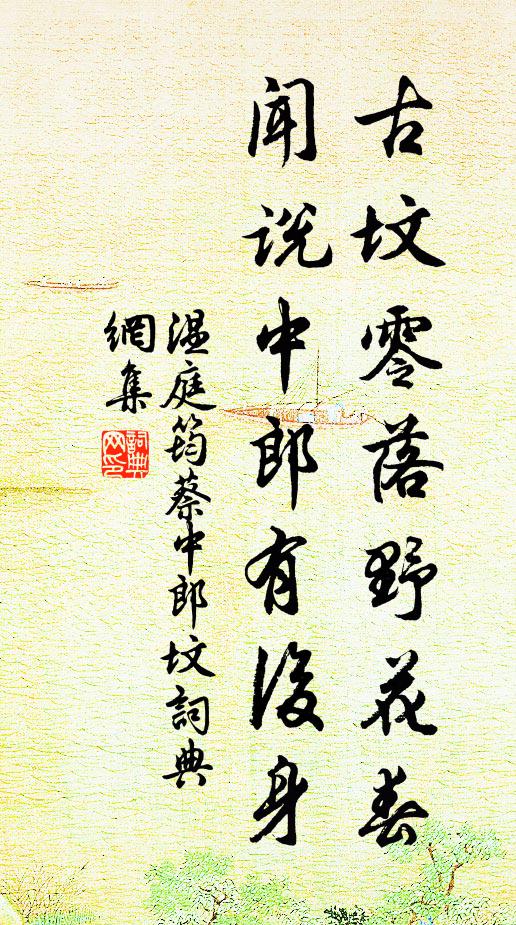 古坟零落野花春
闻说中郎有後身
温庭筠蔡中郎坟詞典
網集
詞典
网印